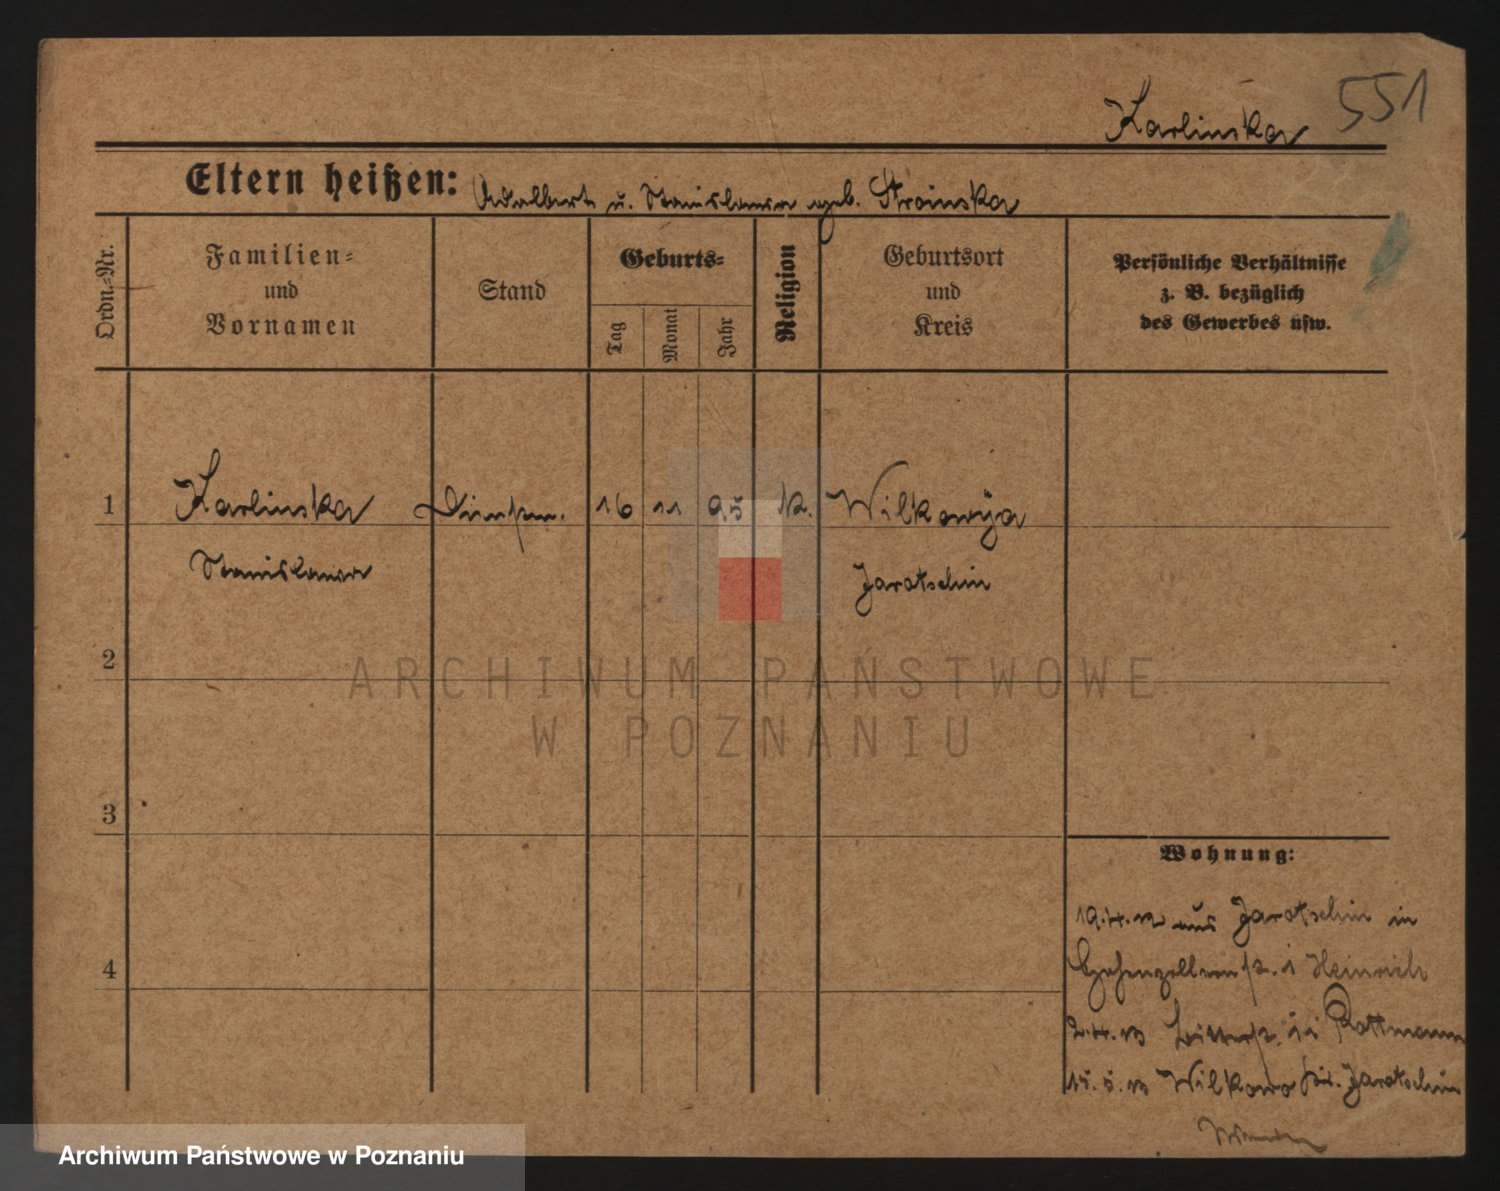 Karlinska 551
Eltern heißen: Adalbert u. Stanislawa geb. Stroinska
Ordn.-Nr.
Familien-
und
Vornamen
Stand
Geburts-
Tag
Monat
Jahr
Religion
Geburtsort
und
Kreis
Persönliche Verhältnisse
z. B. bezüglich
des Gewerbes usw.
1 Karlinska 16 11 95 k. Wilkowÿa
Stanislawa Jarotschin
2
3
4
Wohnung:
19.4.12 aus Jarotschin in
Hohenzollernstr. 1 Heinrich
2.4.13 Rottmann
15.5.13 Wilkowo Kr. Jarotschin
ARCHIWUM PAŃSTWOWE
W POZNANIU
Archiwum Państwowe w Poznaniu